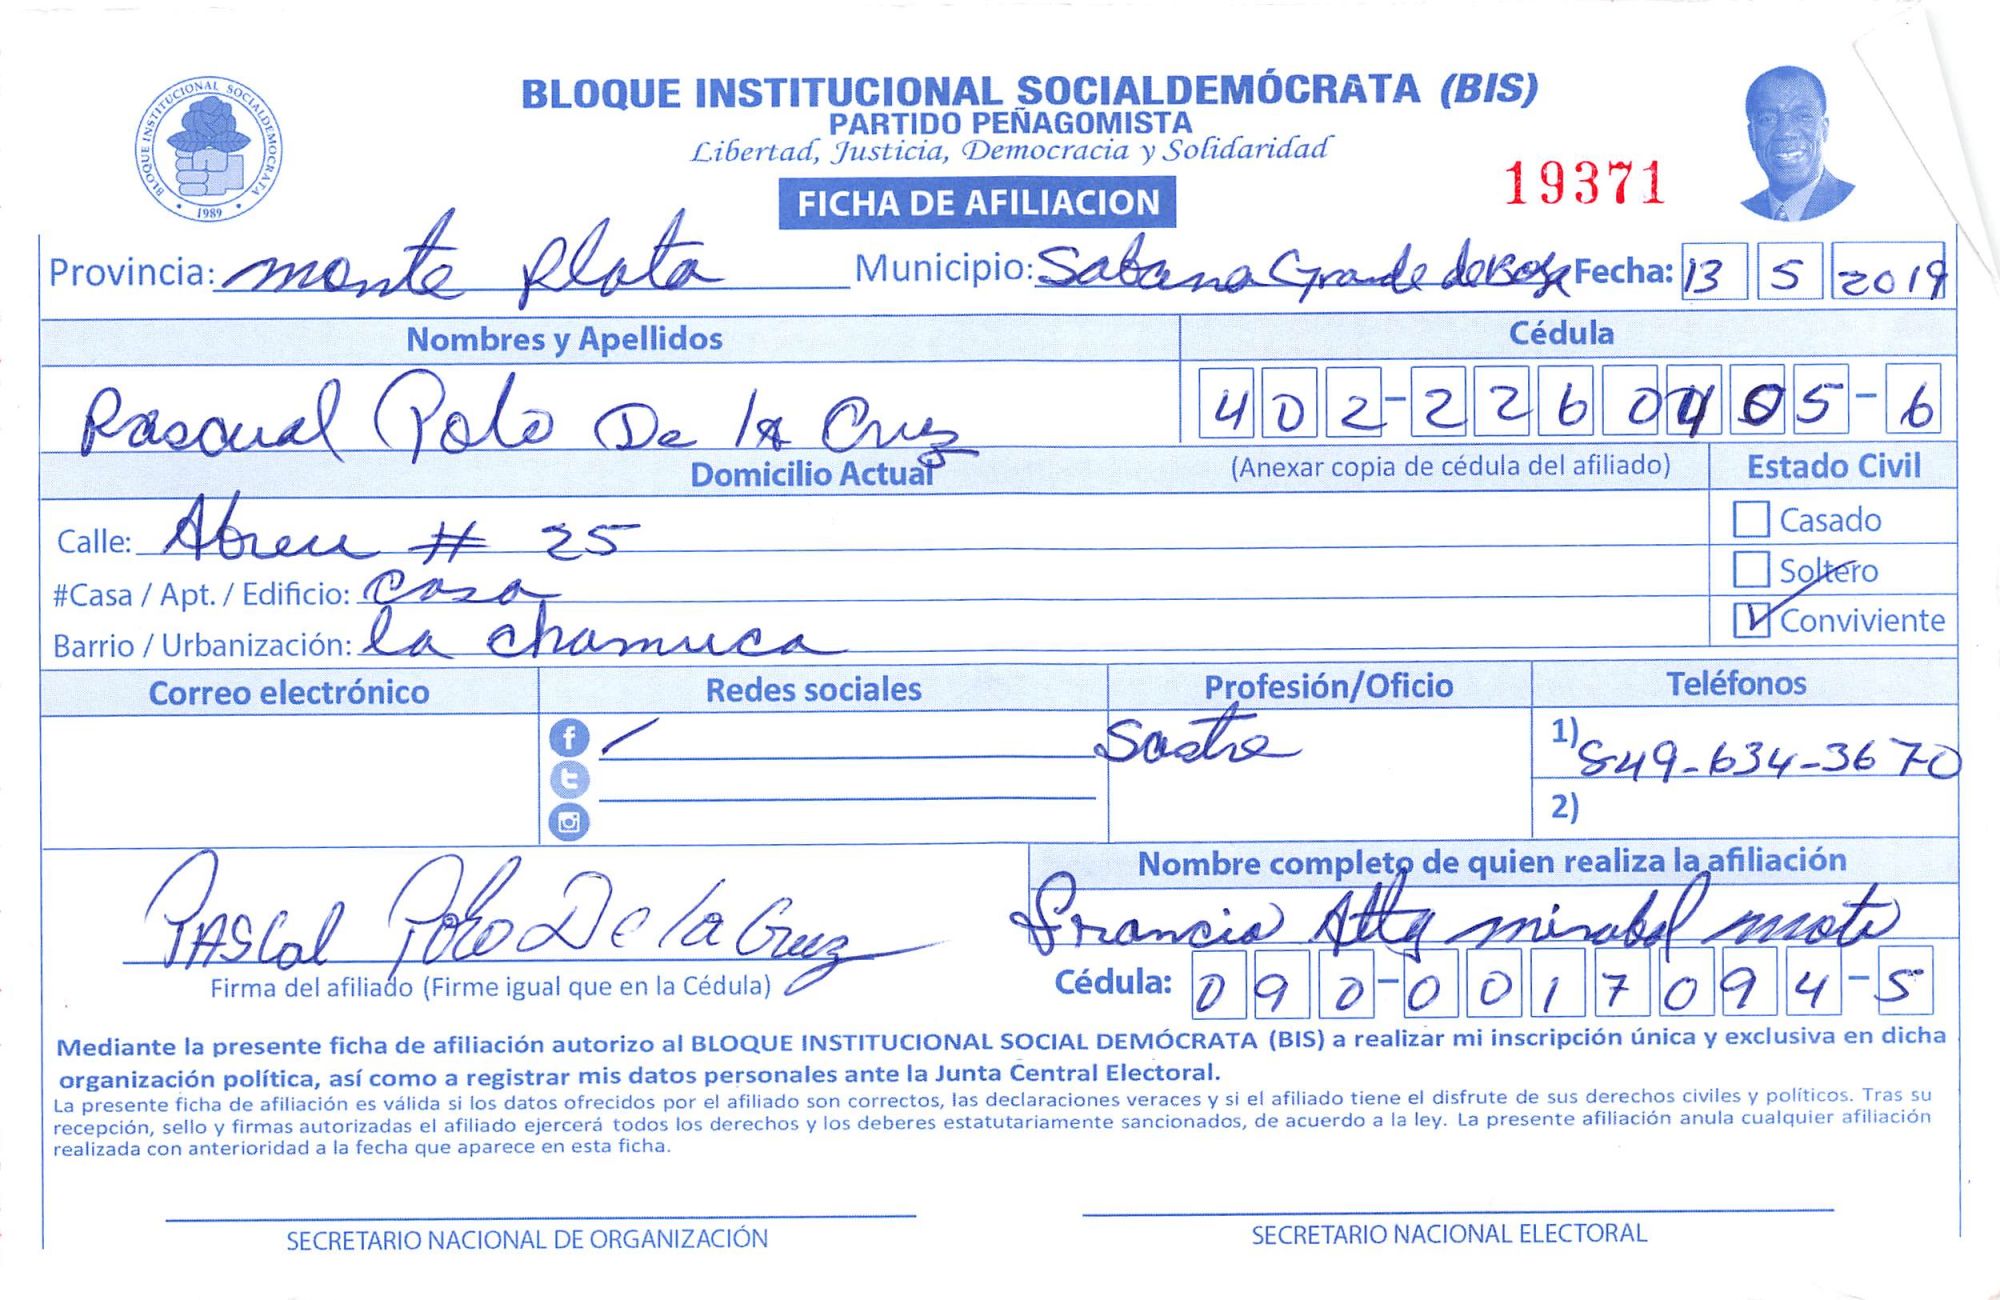 BLOQUE INSTITUCIONAL SOCIALDEMÓCRATA (BIS)
PARTIDO PEÑAGOMISTA
Libertad, Justicia, Democracia y Solidaridad
BLOQUE INSTITUCIONAL SOCIALDEMOCRATA
• 1989 •
19371
FICHA DE AFILIACION
Provincia: monte plata Municipio: Sabana Grande de Boya Fecha: 13 5 2019
Nombres y Apellidos Cédula
Pascual Polo De la Cruz 402-2260405-6
Domicilio Actual (Anexar copia de cédula del afiliado) Estado Civil
Calle: Abreu # 25 Casado
#Casa / Apt. / Edificio: Casa Soltero
Barrio / Urbanización: la chamuca Conviviente
Correo electrónico Redes sociales Profesión/Oficio Teléfonos
Sastre 1) 849-634-3670
2)
Nombre completo de quien realiza la afiliación
PAScal Polo De la Cruz Francia mirabal
Firma del afiliado (Firme igual que en la Cédula) Cédula: 090-0017094-5
Mediante la presente ficha de afiliación autorizo al BLOQUE INSTITUCIONAL SOCIAL DEMÓCRATA (BIS) a realizar mi inscripción única y exclusiva en dicha
organización política, así como a registrar mis datos personales ante la Junta Central Electoral.
La presente ficha de afiliación es válida si los datos ofrecidos por el afiliado son correctos, las declaraciones veraces y si el afiliado tiene el disfrute de sus derechos civiles y políticos. Tras su
recepción, sello y firmas autorizadas el afiliado ejercerá todos los derechos y los deberes estatutariamente sancionados, de acuerdo a la ley. La presente afiliación anula cualquier afiliación
realizada con anterioridad a la fecha que aparece en esta ficha.
SECRETARIO NACIONAL DE ORGANIZACIÓN SECRETARIO NACIONAL ELECTORAL